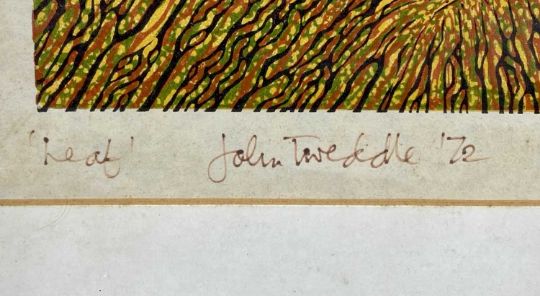 'Leaf' John Tweddle '72